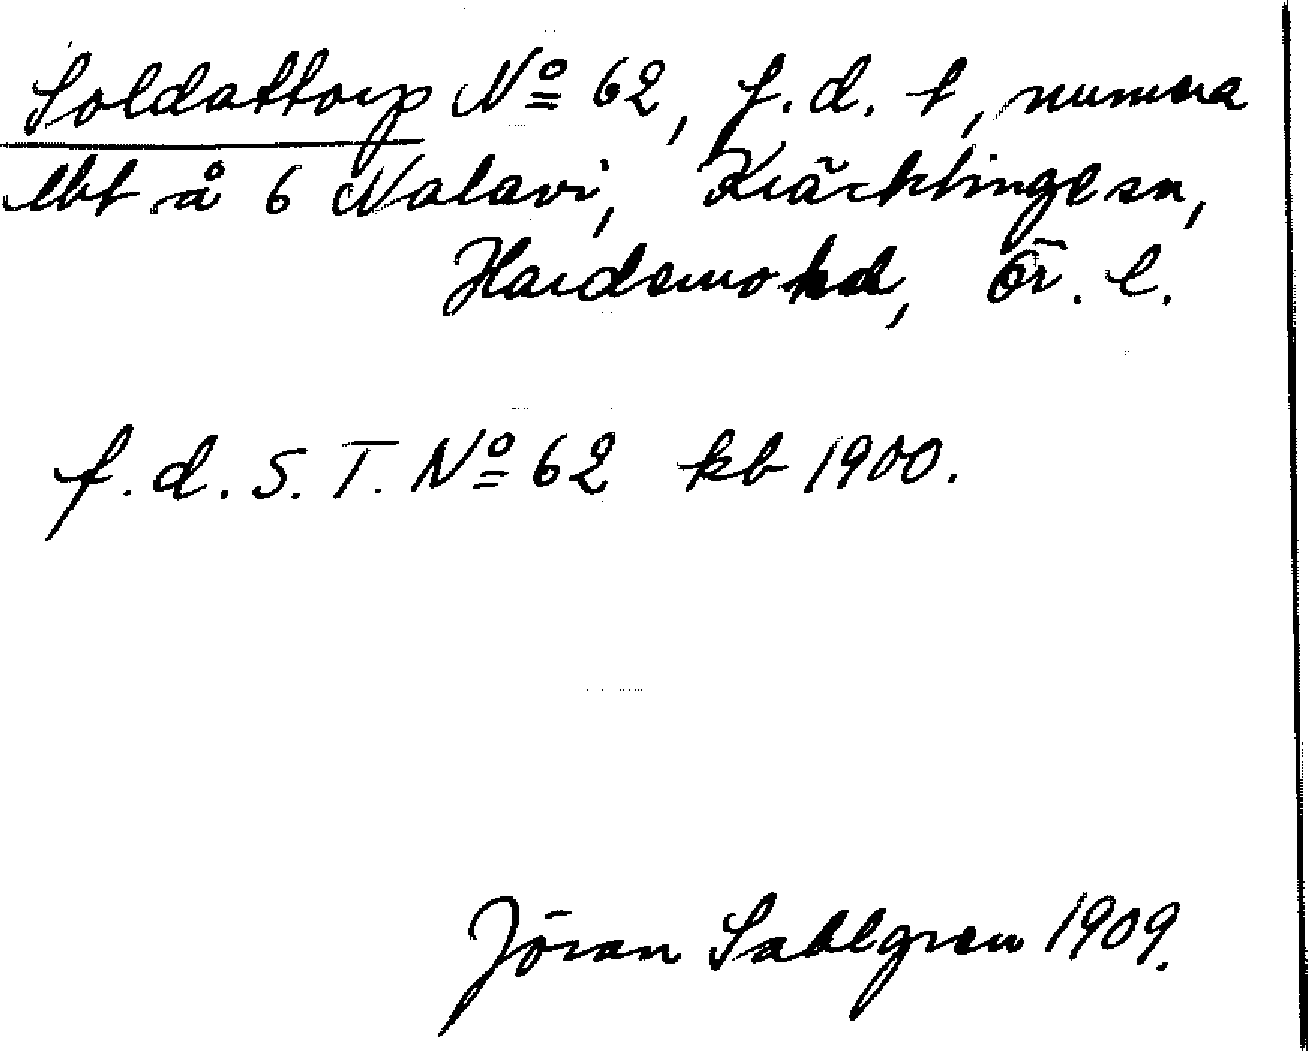 Soldattorp No 62, f.d. t, numera
lht å 6 Nalavi, Kräcklinge sn,
Hardemo hd, Ör. l.
f.d. S. T. No 62 kb 1900.
Jöran Sahlgren 1909.